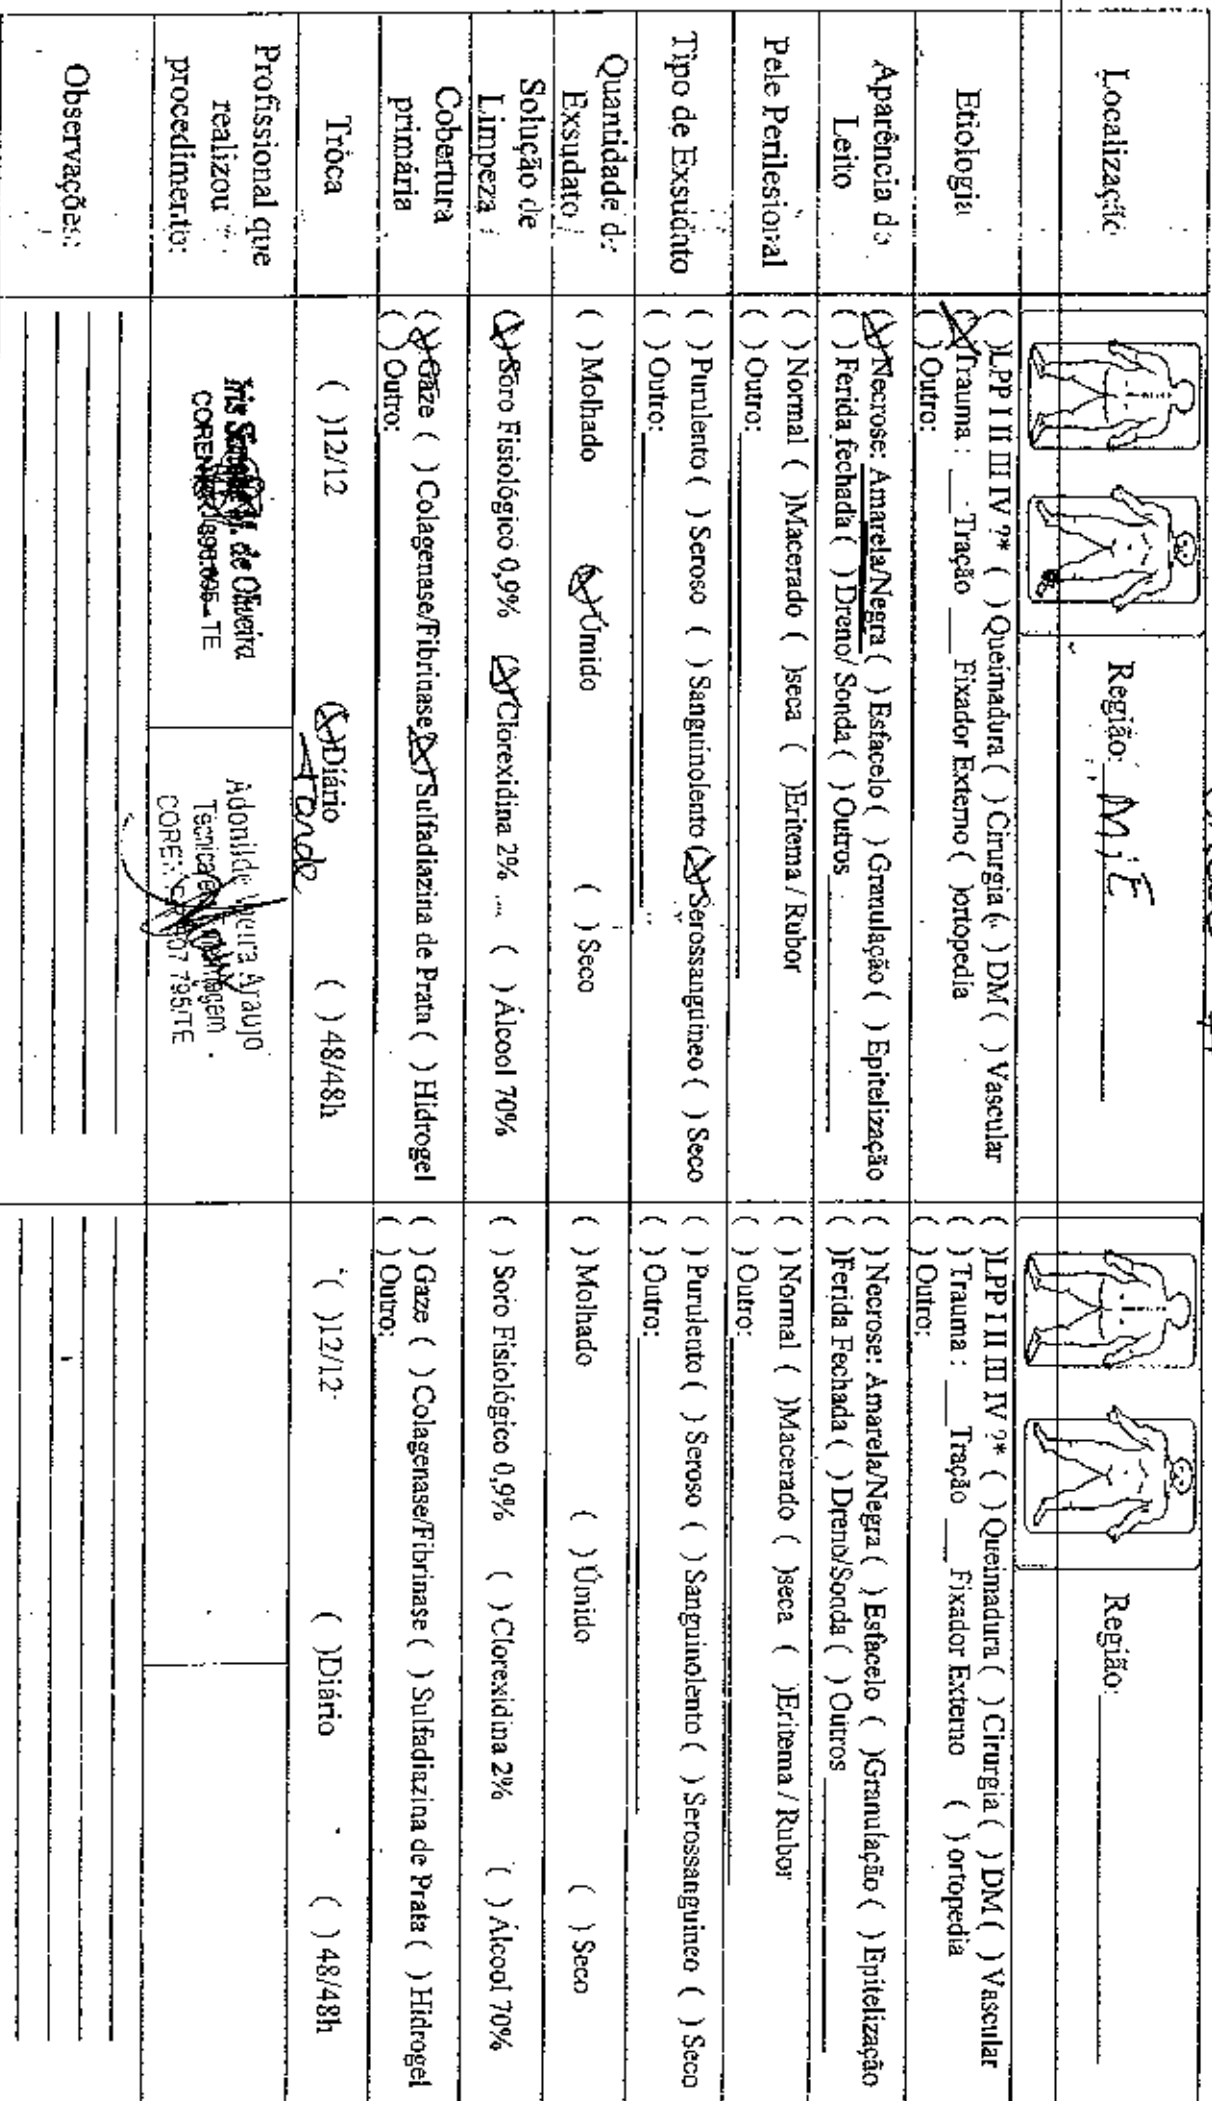 Localização
Região: M.I.E
Região:
Etiologia
( )LPP I II III IV ?* ( ) Queimadura ( ) Cirurgia ( ) DM ( ) Vascular
(X)Trauma : ___ Tração ___ Fixador Externo ( )ortopedia
( ) Outro:
( )LPP I II III IV ?* ( ) Queimadura ( ) Cirurgia ( ) DM ( ) Vascular
( ) Trauma : ___ Tração ___ Fixador Externo ( ) ortopedia
( ) Outro:
Aparência do
Leito
(X)Necrose: Amarela/Negra ( ) Esfacelo ( ) Granulação ( ) Epitelização
( ) Ferida fechada ( ) Dreno/ Sonda ( ) Outros
( ) Necrose: Amarela/Negra ( ) Esfacelo ( )Granulação ( ) Epitelização
( )Ferida Fechada ( ) Dreno/Sonda ( ) Outros
Pele Perilesional
( ) Normal ( )Macerado ( )seca ( )Eritema / Rubor
( ) Outro:
( ) Normal ( )Macerado ( )seca ( )Eritema / Rubor
( ) Outro:
Tipo de Exsudato
( ) Purulento ( ) Seroso ( ) Sanguinolento (X)Serossanguineo ( ) Seco
( ) Outro:
( ) Purulento ( ) Seroso ( ) Sanguinolento ( ) Serossanguineo ( ) Seco
( ) Outro:
Quantidade de
Exsudato
( ) Molhado (X)Úmido ( ) Seco
( ) Molhado ( ) Úmido ( ) Seco
Solução de
Limpeza
(X) Soro Fisiológico 0,9% (X)Clorexidina 2% ( ) Álcool 70%
( ) Soro Fisiológico 0,9% ( ) Clorexidina 2% ( ) Álcool 70%
Cobertura
primária
(X) Gaze ( ) Colagenase/Fibrinase (X) Sulfadiazina de Prata ( ) Hidrogel
( ) Outro:
( ) Gaze ( ) Colagenase/Fibrinase ( ) Sulfadiazina de Prata ( ) Hidrogel
( ) Outro:
Troca
( )12/12 (X)Diário ( ) 48/48h
Tarde
( )12/12 ( )Diário ( ) 48/48h
Profissional que
realizou
procedimento:
M. de Oliveira
COREN TE
Adonilde Vieira Araujo
Técnica
COREN 795/TE
Observações: